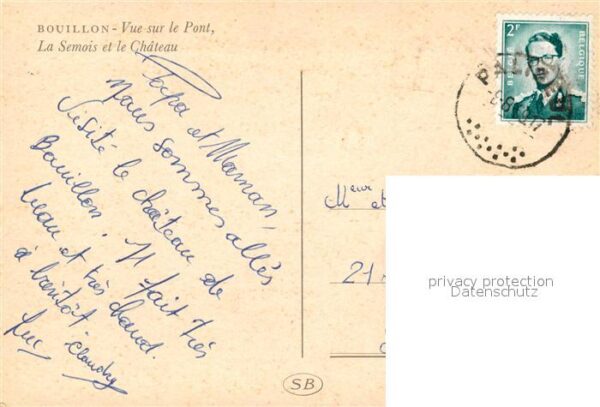 BOUILLON - Vue sur le Pont,
La Semois et le Château
Papa et Maman,
nous sommes allés
visité le château de
Bouillon. Il fait très
beau et très chaud.
à bientôt
Luc Claudy
2F
BELGIE
BELGIQUE
Meur et
21
privacy protection
Datenschutz
SB